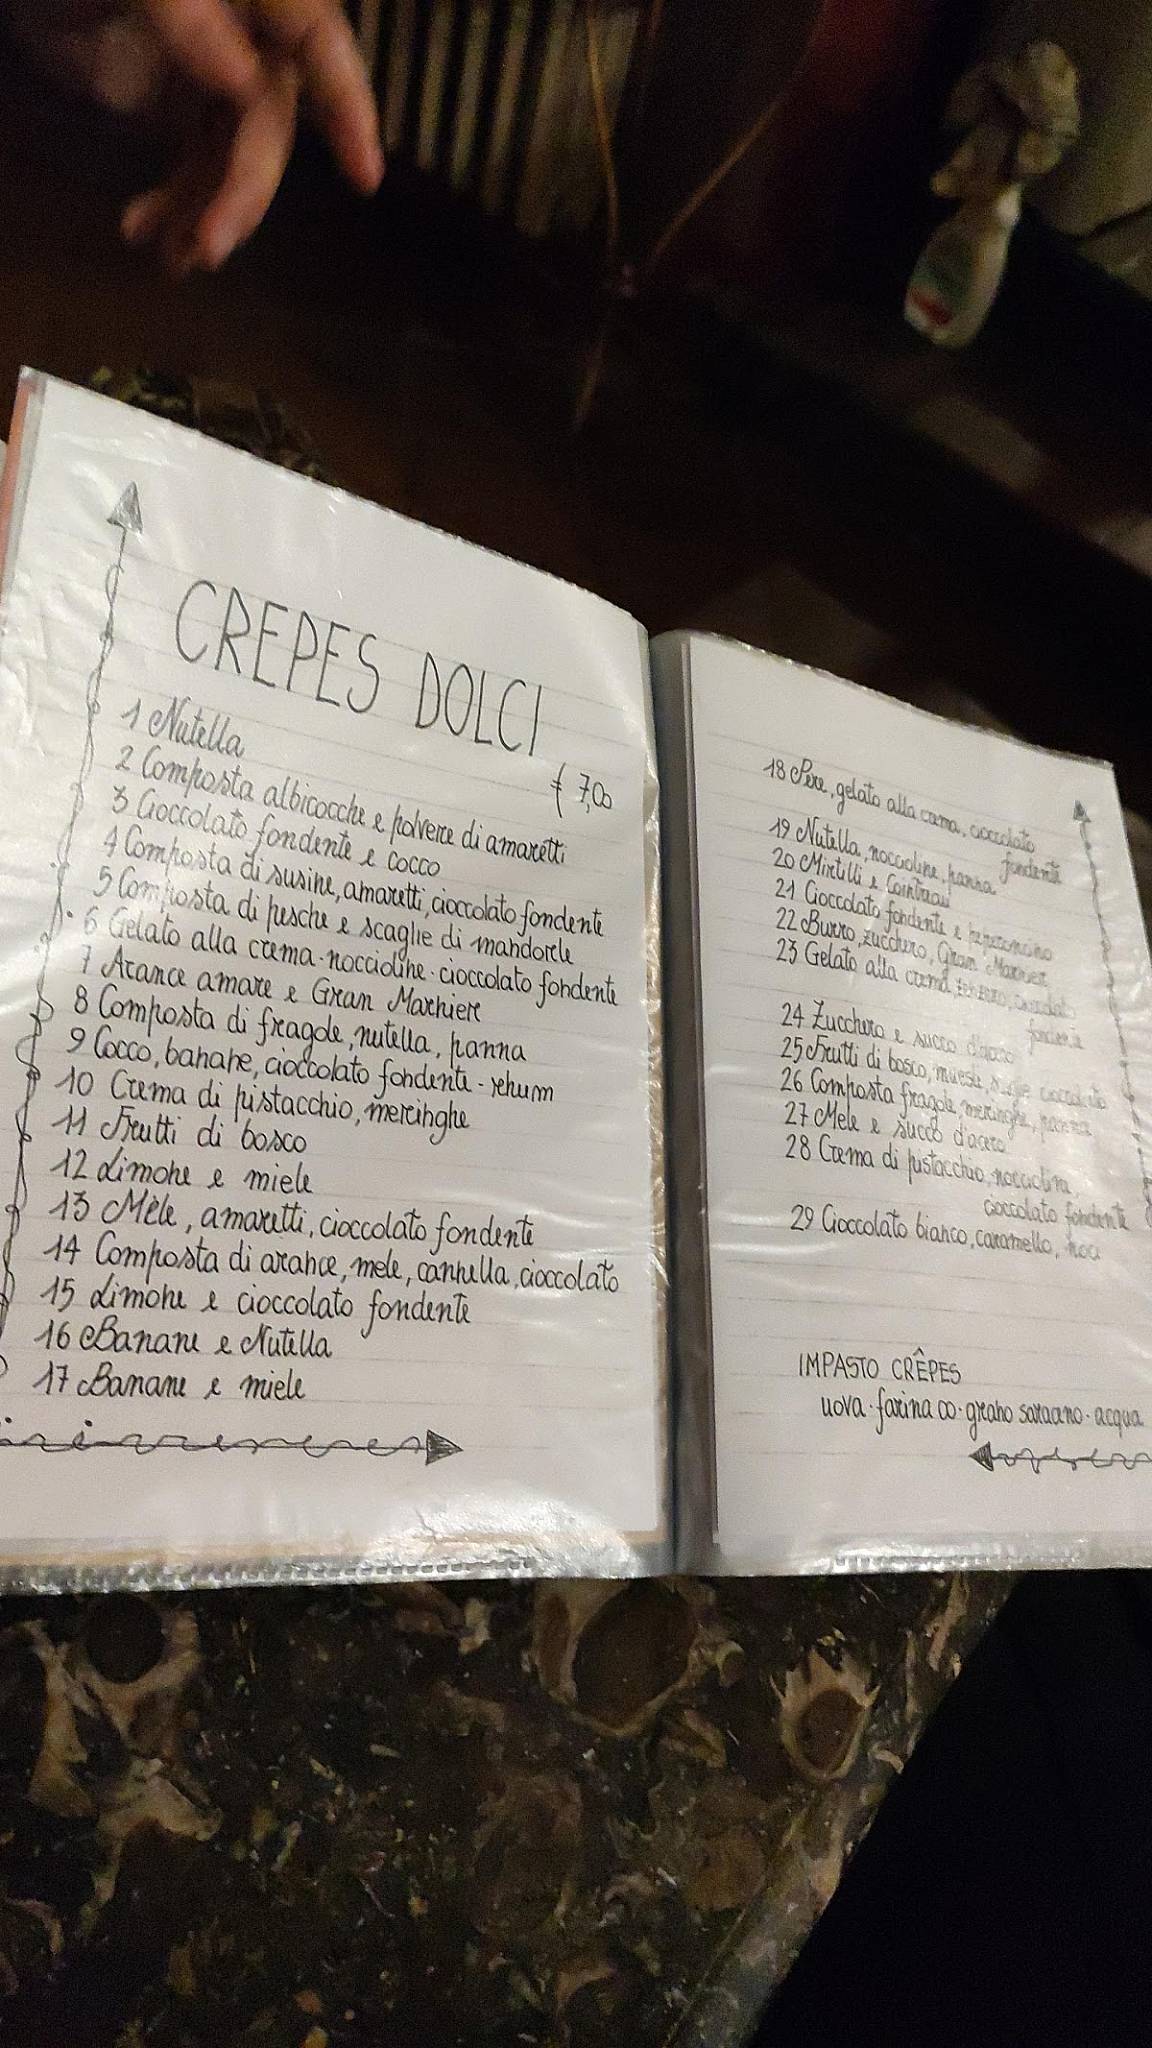 CREPES DOLCI
€ 7,00
1 Nutella
2 Composta albicocche e polvere di amaretti
3 Cioccolato fondente e cocco
4 Composta di susine, amaretti, cioccolato fondente
5 Composta di pesche e scaglie di mandorle
6 Gelato alla crema · noccioline · cioccolato fondente
7 Arance amare e Gran Marniere
8 Composta di fragole, nutella, panna
9 Cocco, banane, cioccolato fondente - rehum
10 Crema di pistacchio, meringhe
11 Frutti di bosco
12 Limone e miele
13 Mele, amaretti, cioccolato fondente
14 Composta di arance, mele, cannella, cioccolato
15 Limone e cioccolato fondente
16 Banane e Nutella
17 Banane e miele
18 Pere, gelato alla crema, cioccolato
fondente
19 Nutella, noccioline, panna
20 Mirtilli e Cointreau
21 Cioccolato fondente e peperoncino
22 Burro, zucchero, Gran Marnier
23 Gelato alla crema, zenzero, cioccolato
fondente
24 Zucchero e succo d'acero
25 Frutti di bosco, muesli, cioccolato
26 Composta fragole, meringhe, panna
27 Mele e succo d'acero
28 Crema di pistacchio, noccioline,
cioccolato fondente
29 Cioccolato bianco, caramello, noci
IMPASTO CRÊPES
uova · farina 00 · grano saraceno · acqua